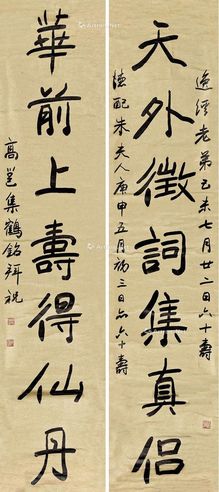 天外徵詞集真侶
逸經老弟己未七月廿二日六十壽
德配朱夫人庚申五月初三日亦六十壽
華前上壽得仙丹
高邕集鶴銘拜祝